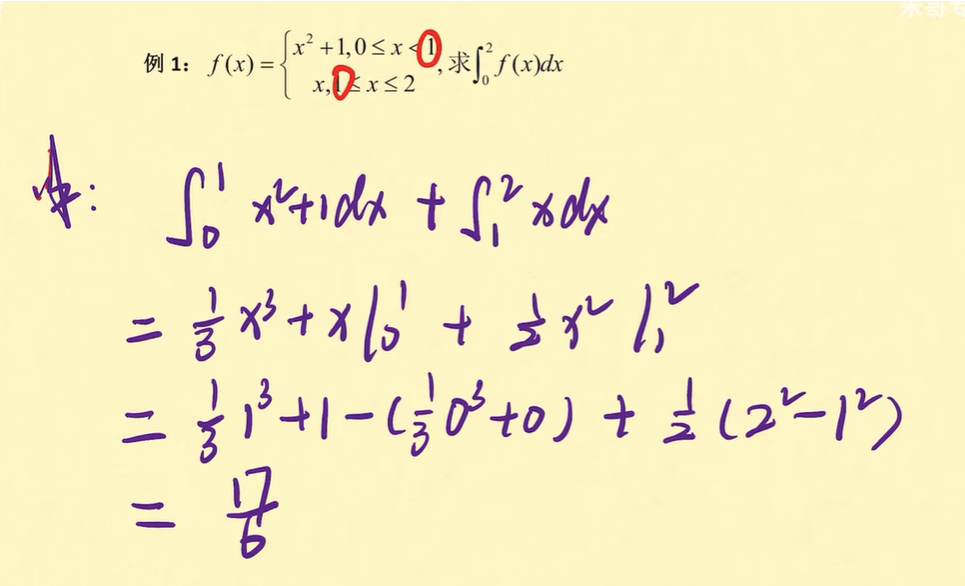 例 1： f(x) = { x² + 1, 0 ≤ x < 1
x, 1 ≤ x ≤ 2 , 求∫₀² f(x)dx
∫₀¹ x²+1dx + ∫₁² xdx
= 1/3 x³ + x |₀¹ + 1/2 x² |₁²
= 1/3 1³ + 1 - (1/3 0³ + 0) + 1/2 (2² - 1²)
= 17/6